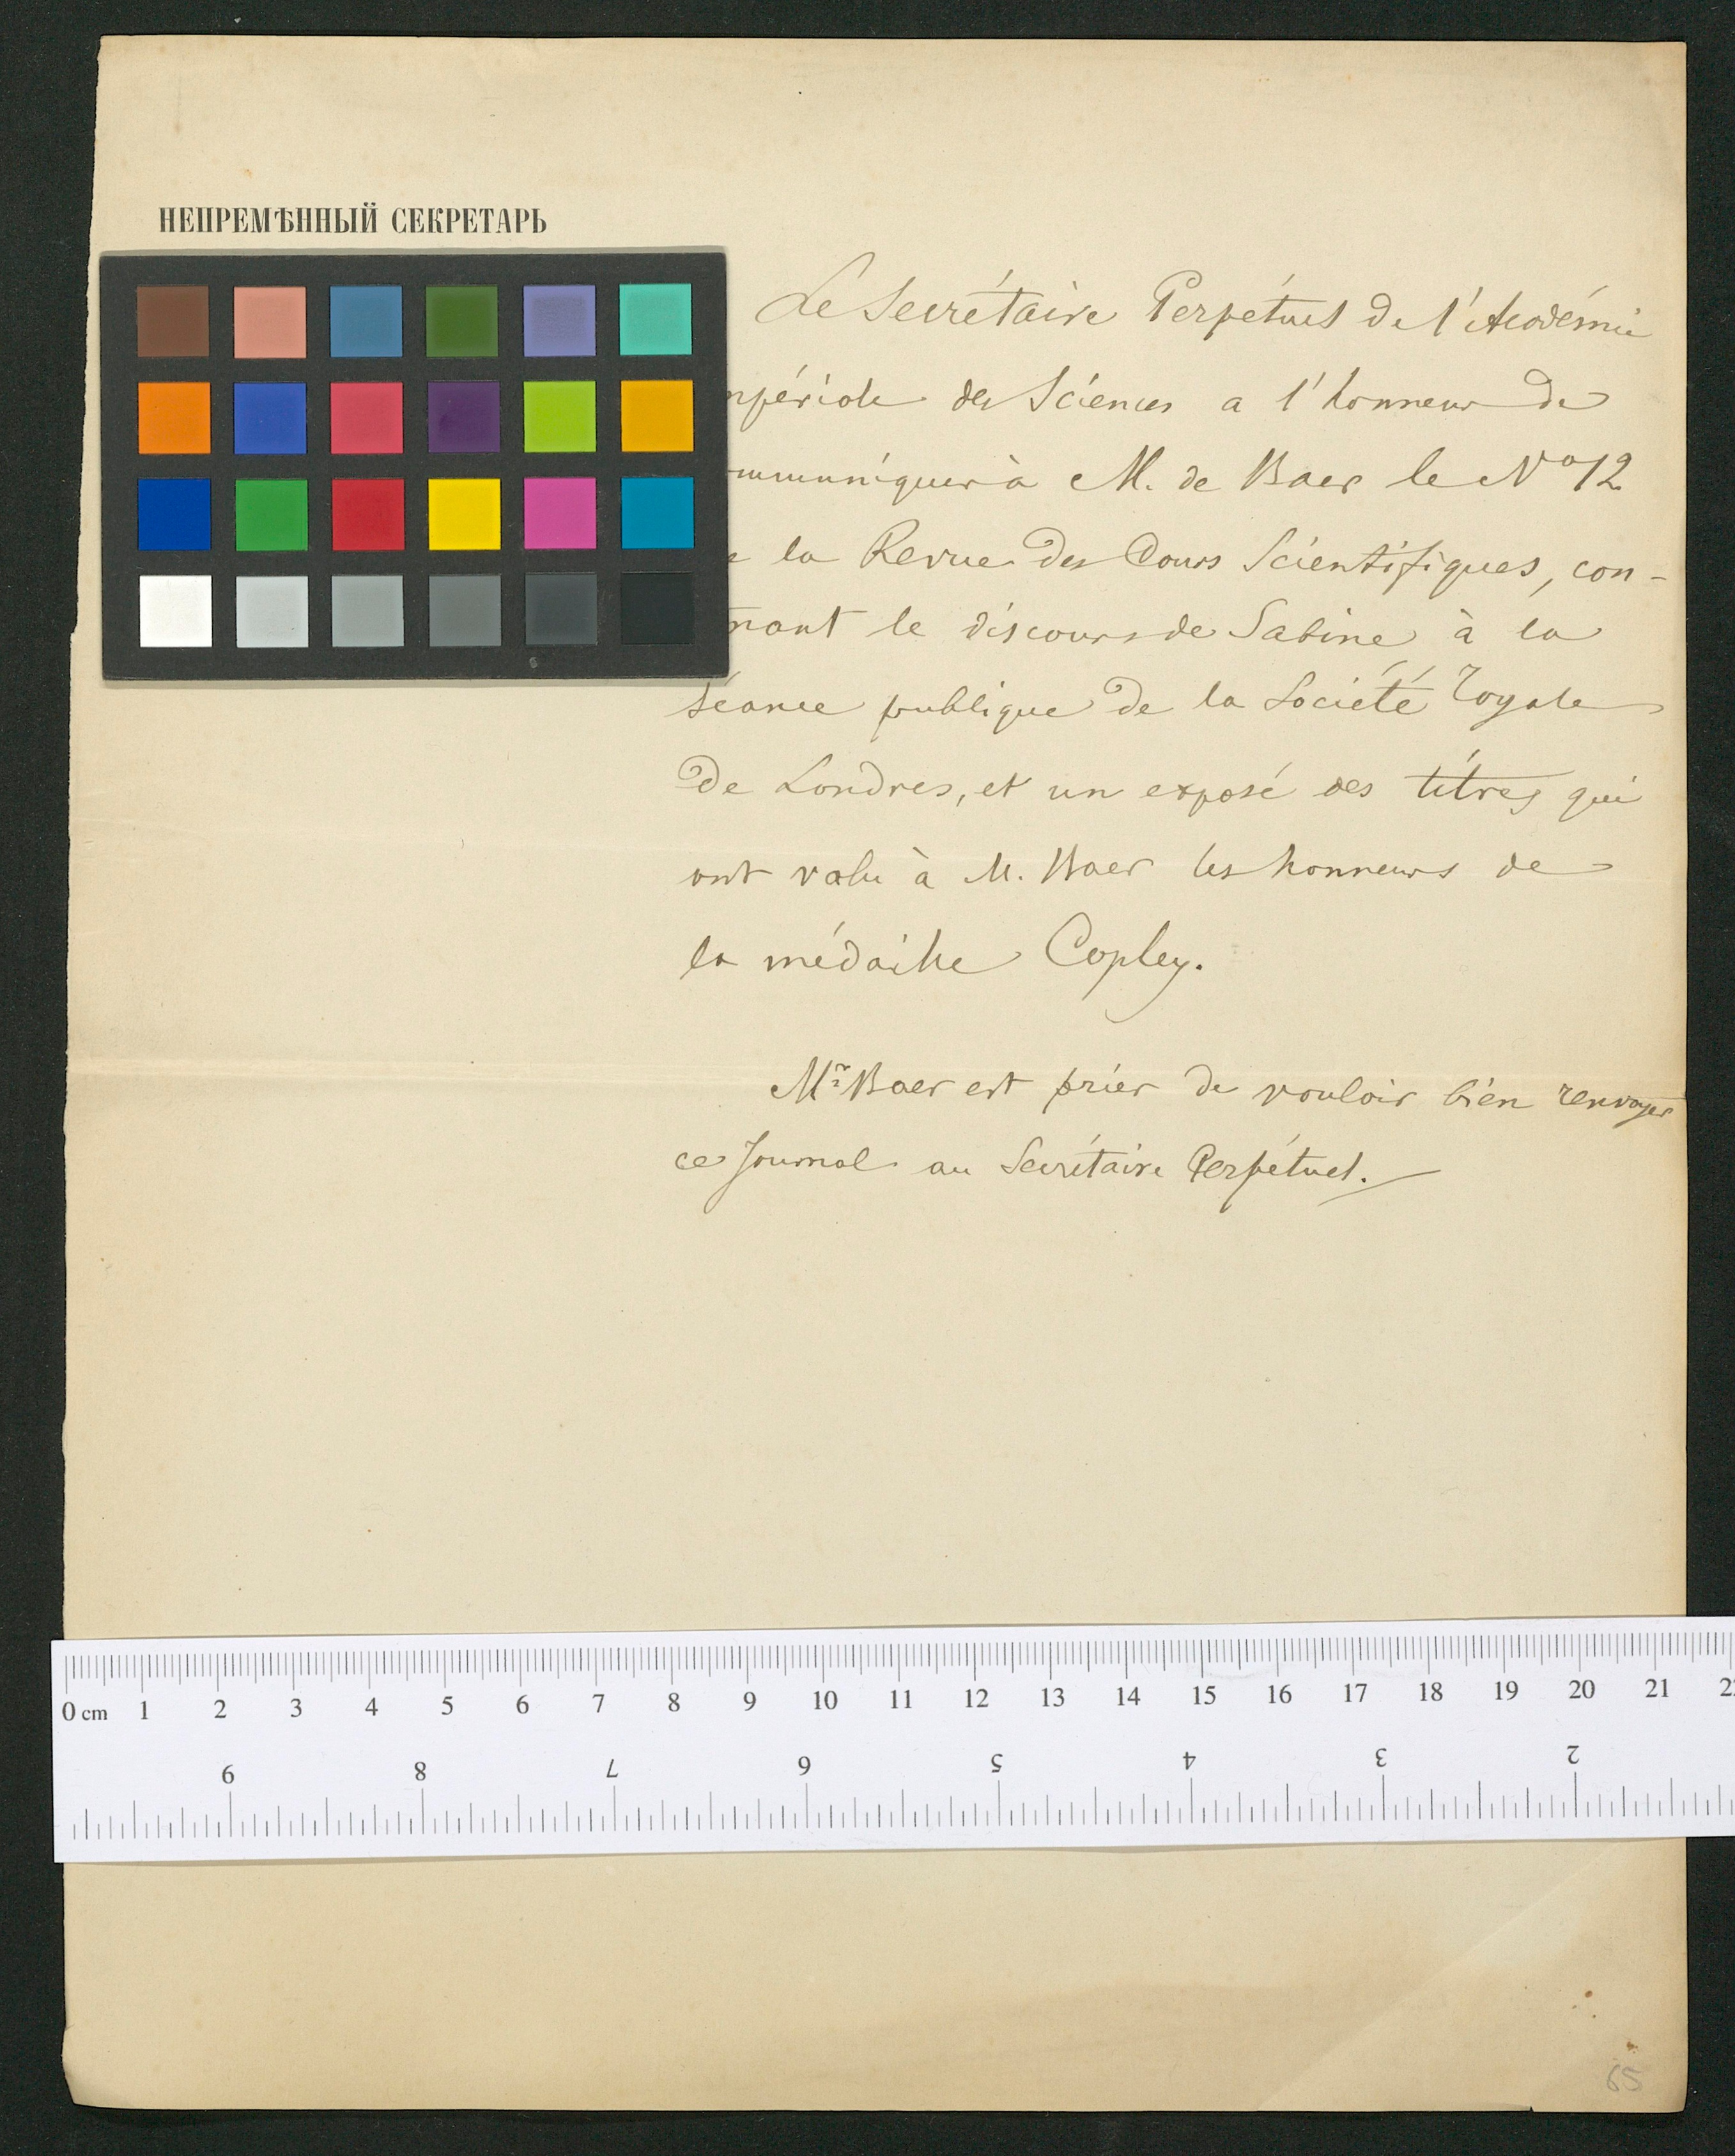 НЕПРЕМѢННЫЙ СЕКРЕТАРЬ
Le Secrétaire Perpétuel de l'Académie
npériale des Sciences a l'honneur de
mmuniquer à M. de Baer le No 12
e la Revue des Cours Scientifiques, con-
nant le discours de Sabine à la
séance publique de la Société royale
de Londres, et un exposé des titres qui
ont valu à M. Baer les honneurs de
la médaille Copley.
Mr Baer est prier de vouloir bien renvoyer
ce Journal au Secrétaire Perpétuel.
0 cm 1 2 3 4 5 6 7 8 9 10 11 12 13 14 15 16 17 18 19 20 21 2
9 8 7 6 5 4 3 2
65